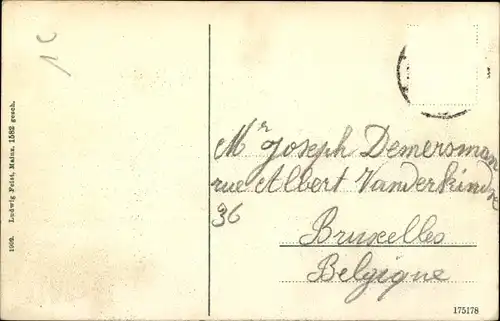 1909. Ludwig Feist, Mainz. 1582 gesch.
Mr Joseph Demersman
rue Albert Vanderkindre
36
Bruxelles
Belgique
175178